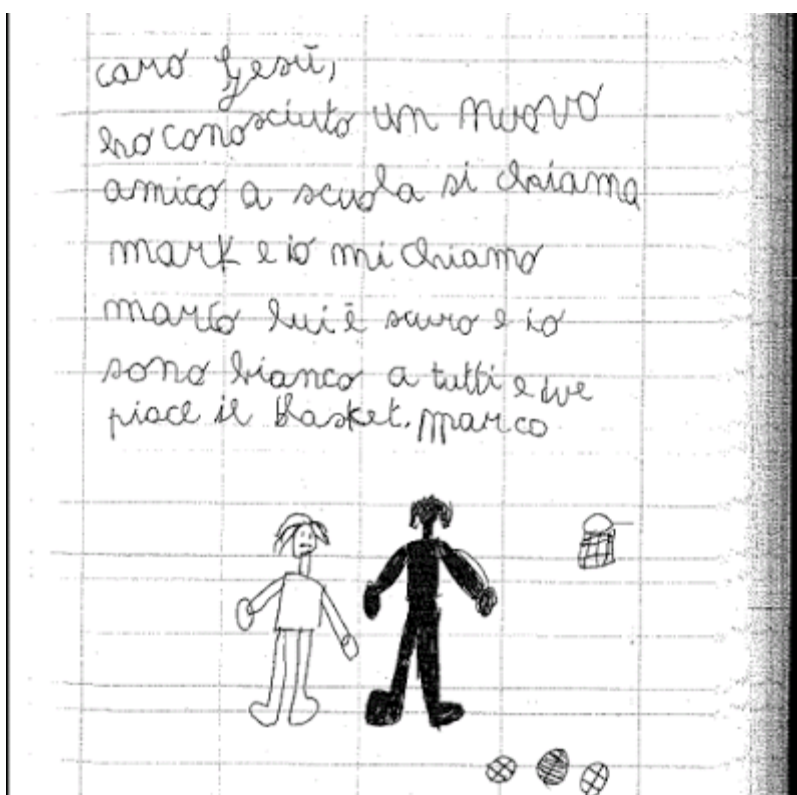 caro Gesù,
ho conosciuto un nuovo
amico a scuola si chiama
mark e io mi chiamo
marco lui è scuro e io
sono bianco a tutti e due
piace il basket. marco